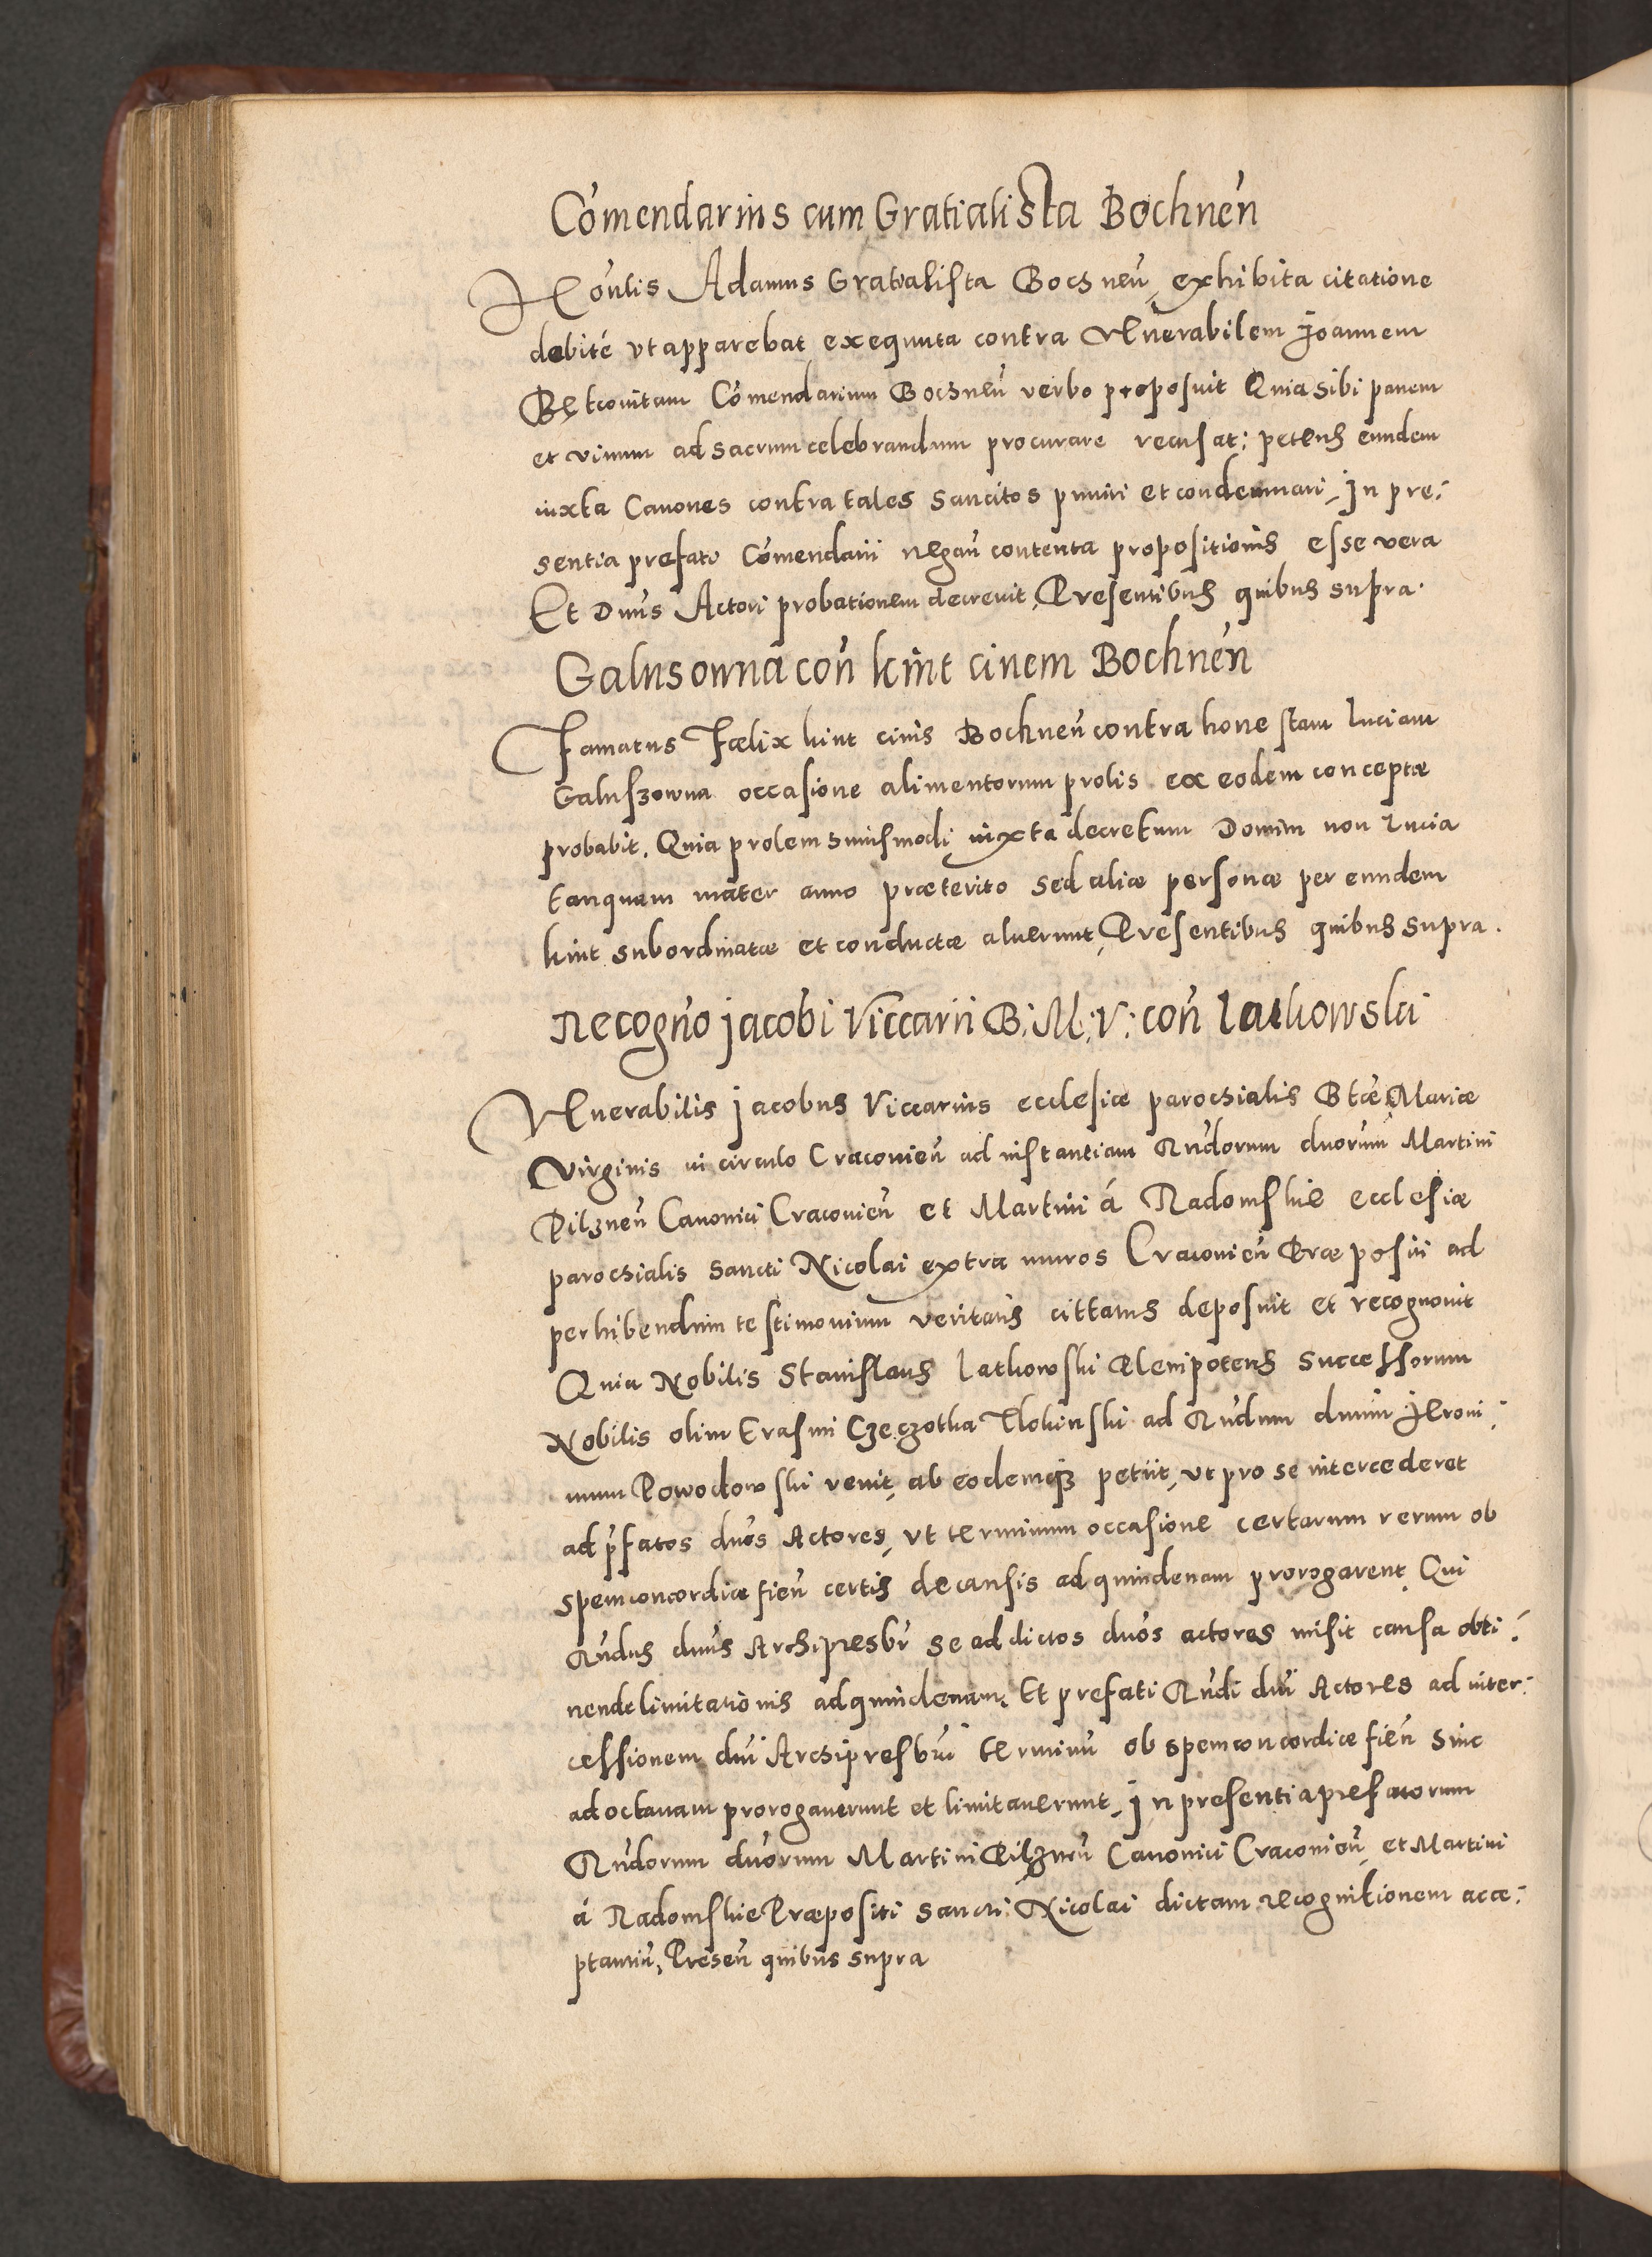 Com̄endarius cum Gratialista Bochneń
Hońlis Adamus Gratialista Bochneń, exhibita citatione
debité vt apparebat exequuta contra Venerabilem Joannem
Com̄endarium Bochneń verbo proposuit Quia sibi panem
et vinum ad sacrum celebrandum procurare recusat: petens eundem
iuxta Canones contra tales sancitos puniri et condemnari, Jn pre:
sentia prefati Com̄endarii negań contenta propositionis esse vera
Et Dnūs Actori probationem decrevit, Presentibus quibus supra.
Galusowna coń kint ciuem Bochneń
Famatus Fœlix kint ciuis Bochneń contra honestam luciam
Galuszowna occasione alimentorum prolis ex eodem conceptæ
probabit. Quia prolem suiusmodi iuxta decretum Domini non lucia
tanquam mater anno præterito sed aliæ personæ per eundem
kint subordinatæ et conductæ aluerunt, Presentibus quibus supra.
Recogńo jacobi Viccarii B: M: V: coń latkowski
Venerabilis jacobus Viccarius ecclesiæ parochialis Btæ Mariæ
Virginis in circulo Cracovień ad instantiam Rńdorum dnorum Martini
Pilzneń Canonici Cracovień et Martini á Radomskie ecclesiæ
parochialis sancti Nicolai extra muros Cracovień Præpositi ad
perhibendum testimonium veritatis cittatus deposuit et recognovit
Quia Nobilis Stanislaus latkowski Plenipotens successorum
Nobilis olim Erasmi Czeczotka Tlokinski ad Rńdum dnum Jeroni:
mum Powodowski venit, ab eodemq₃ petiit, vt pro se intercederet
ad p̄fatos dnos Actores, vt terminum occasione certarum rerum ob
spem concordiæ fień certis de causis ad quindenam prorogarent, Qui
Rńdus dnus Archipresbr̄ se ad dictos dnos actores misit causa obti:
nende limitationis ad quindenam, Et prefati Rńdi dni Actores ad inter:
cessionem dni Archipresbr̄i terminū ob spem concordiæ fień sinc
ad octavam prorogaverunt et limitaverunt, Jn presentia prefatorum
Rńdorum dnorum Martini Pilzneń Canonici Cracovień, et Martini
á Radomskie Præpositi sancti Nicolai dictam recognitionem acce:
ptantiū, Preseń quibus supra